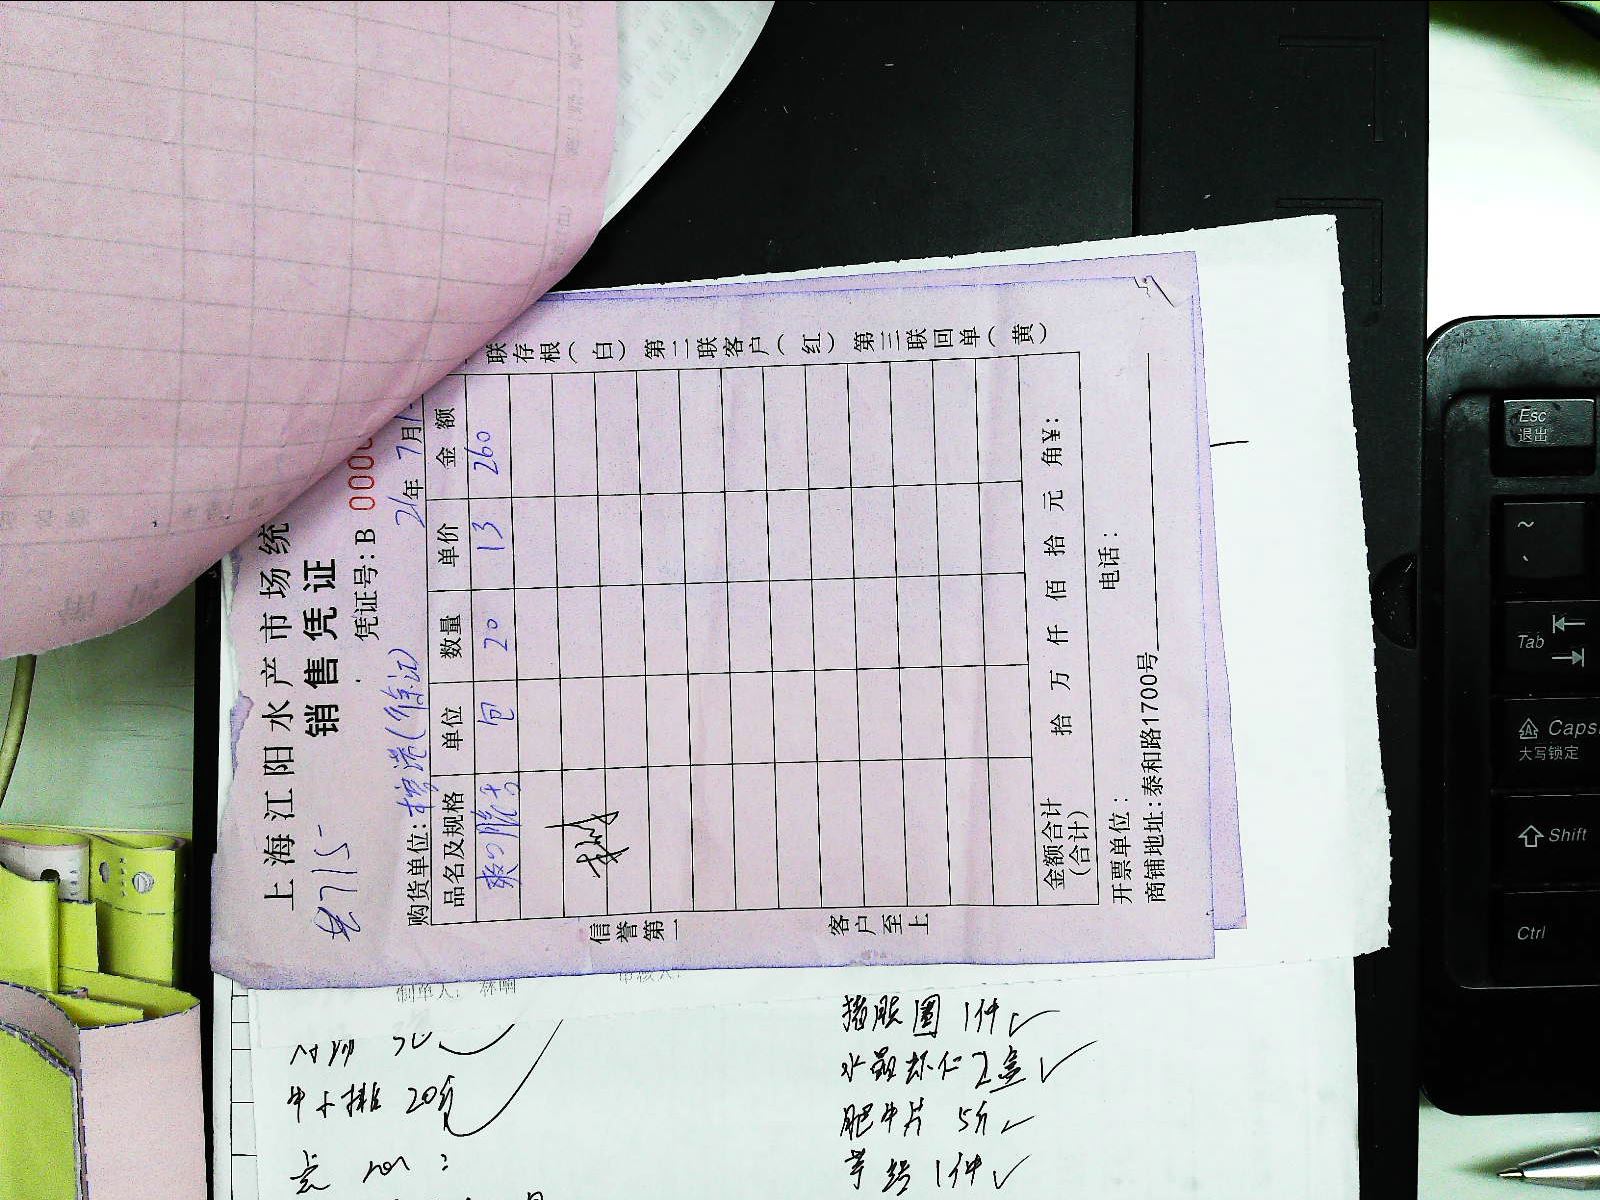 上海江阳水产市场统
销售凭证
凭证号:B 0000
老715
购货单位: (徐汇) 21年 7月1
品名及规格 单位 数量 单价 金额
爽口脆 包 20 13 260
金额合计(合计) 拾 万 仟 佰 拾 元 角¥:
开票单位: 电话:
商铺地址:泰和路1700号
信誉第一 客户至上
联存根(白) 第二联客户(红) 第三联回单(黄)
制单人: 林
审核人:
牛小排 20
1件
水晶虾仁 2盒
肥牛片 5斤
1件
Esc
退出
~
Tab
Caps
大写锁定
Shift
Ctrl